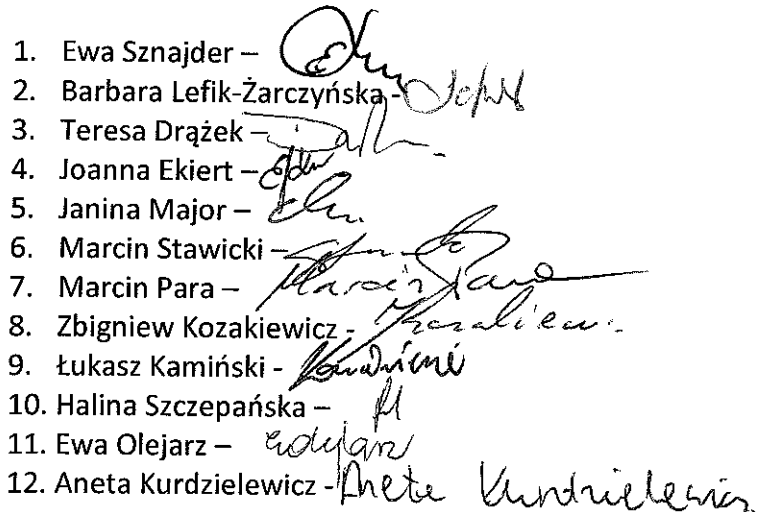 1. Ewa Sznajder –
2. Barbara Lefik-Żarczyńska -
3. Teresa Drążek –
4. Joanna Ekiert –
5. Janina Major –
6. Marcin Stawicki –
7. Marcin Para – Marcin Para
8. Zbigniew Kozakiewicz -
9. Łukasz Kamiński -
10. Halina Szczepańska –
11. Ewa Olejarz –
12. Aneta Kurdzielewicz - Aneta Kurdzielewicz